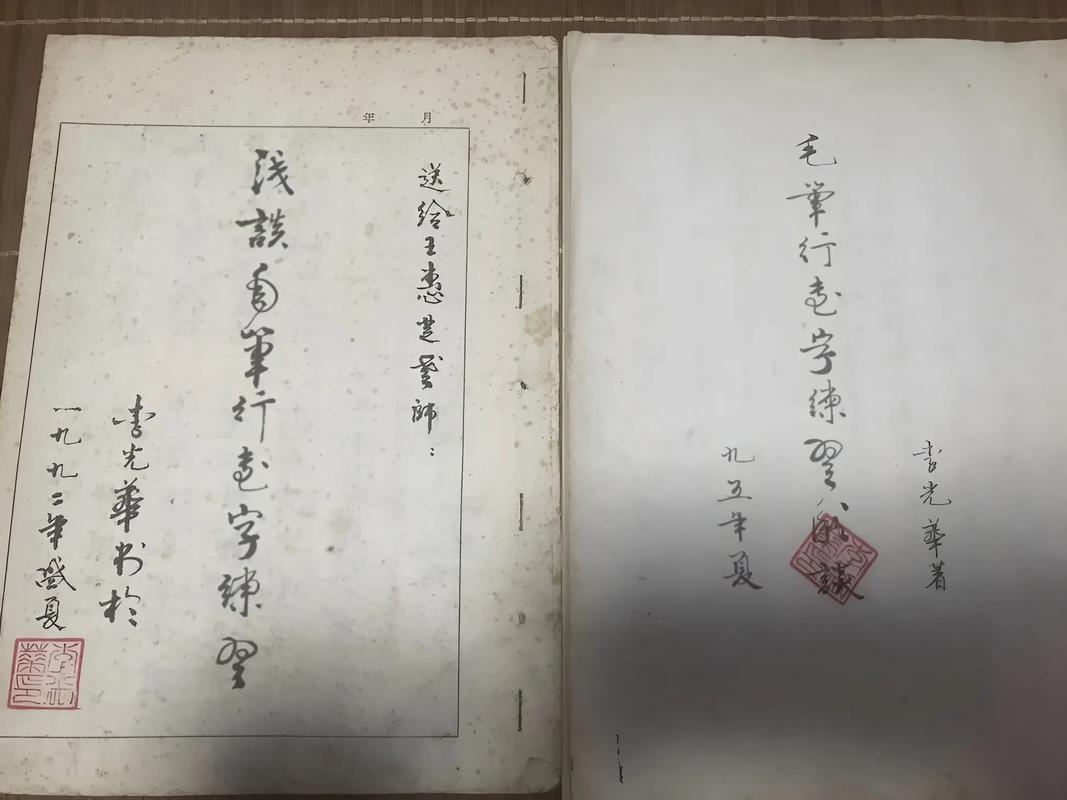 年 月
送给王惠芝 师：
浅談毛筆行書字練習
李光華 於
一九九二年盛夏
李光華印
李光華著
毛筆行書字練習 議
九五年夏